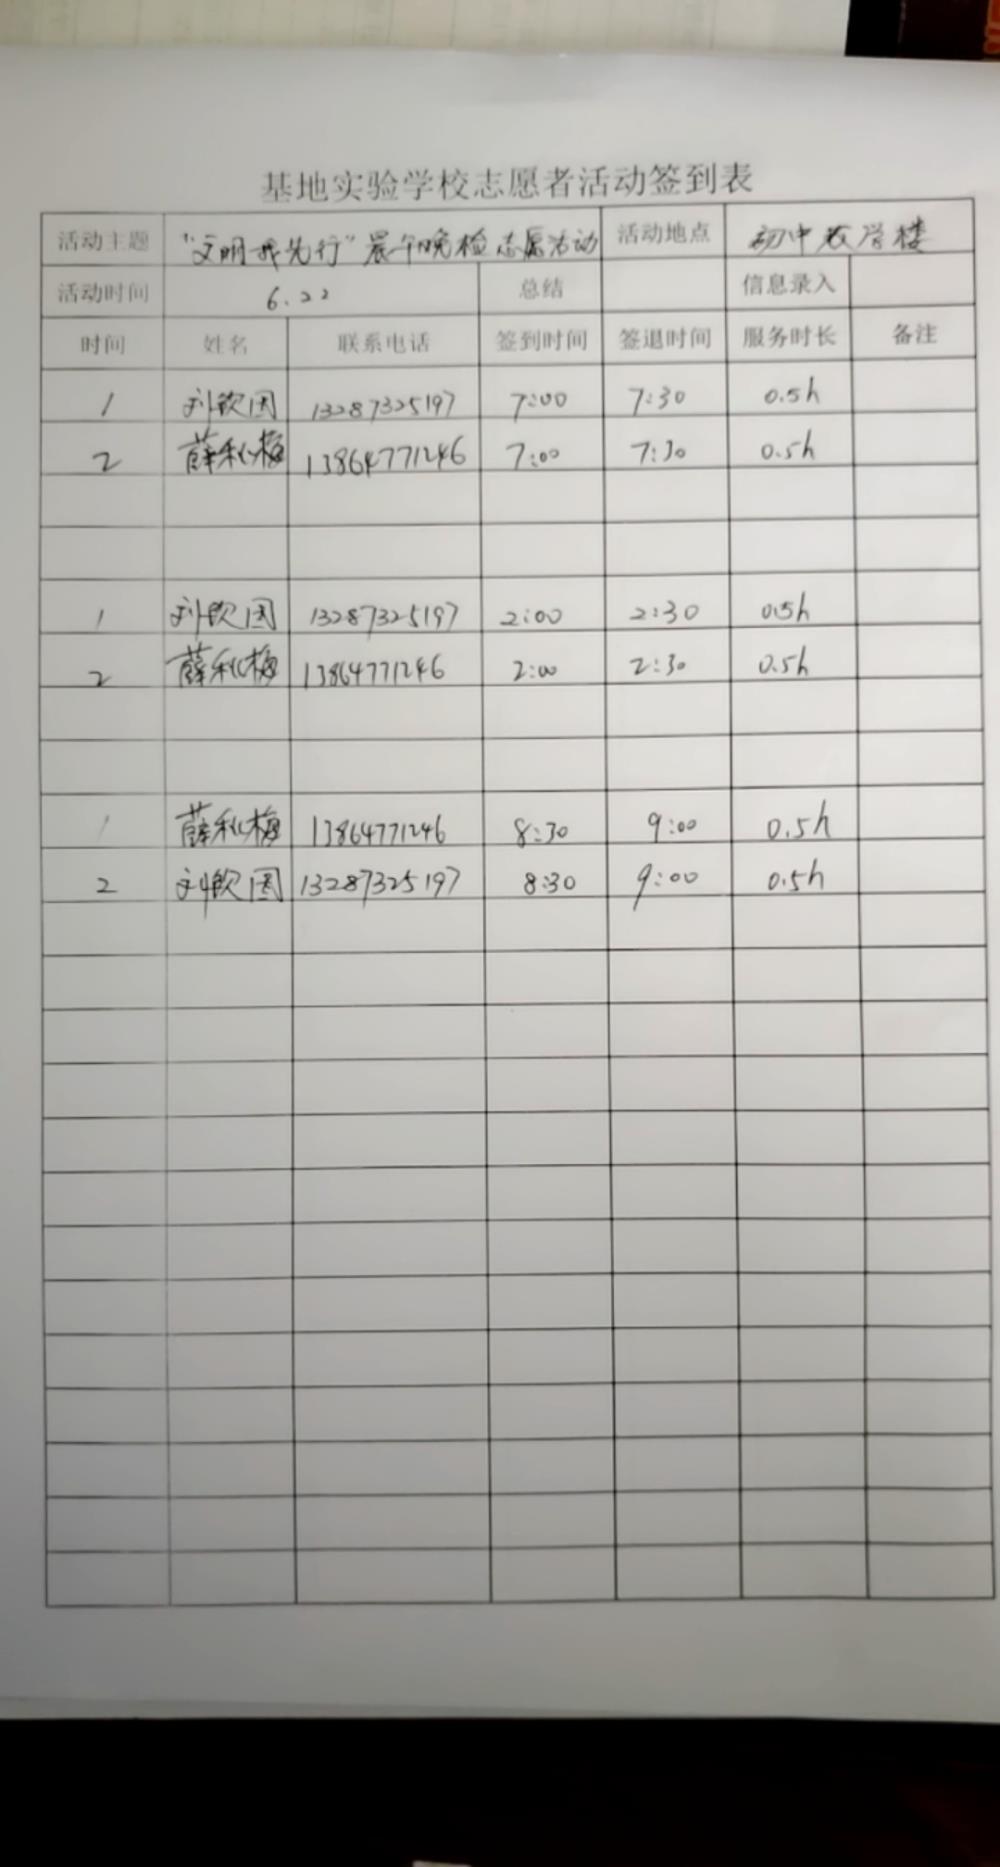 基地实验学校志愿者活动签到表
活动主题 "文明我先行"晨午晚检志愿活动 活动地点 初中教学楼
活动时间 6.22 总结 信息录入
时间 姓名 联系电话 签到时间 签退时间 服务时长 备注
1 刘钦国 13287325197 7:00 7:30 0.5h
2 薛秋梅 13864771246 7:00 7:30 0.5h
1 刘钦国 13287325197 2:00 2:30 0.5h
2 薛秋梅 13864771246 2:00 2:30 0.5h
1 薛秋梅 13864771246 8:30 9:00 0.5h
2 刘钦国 13287325197 8:30 9:00 0.5h